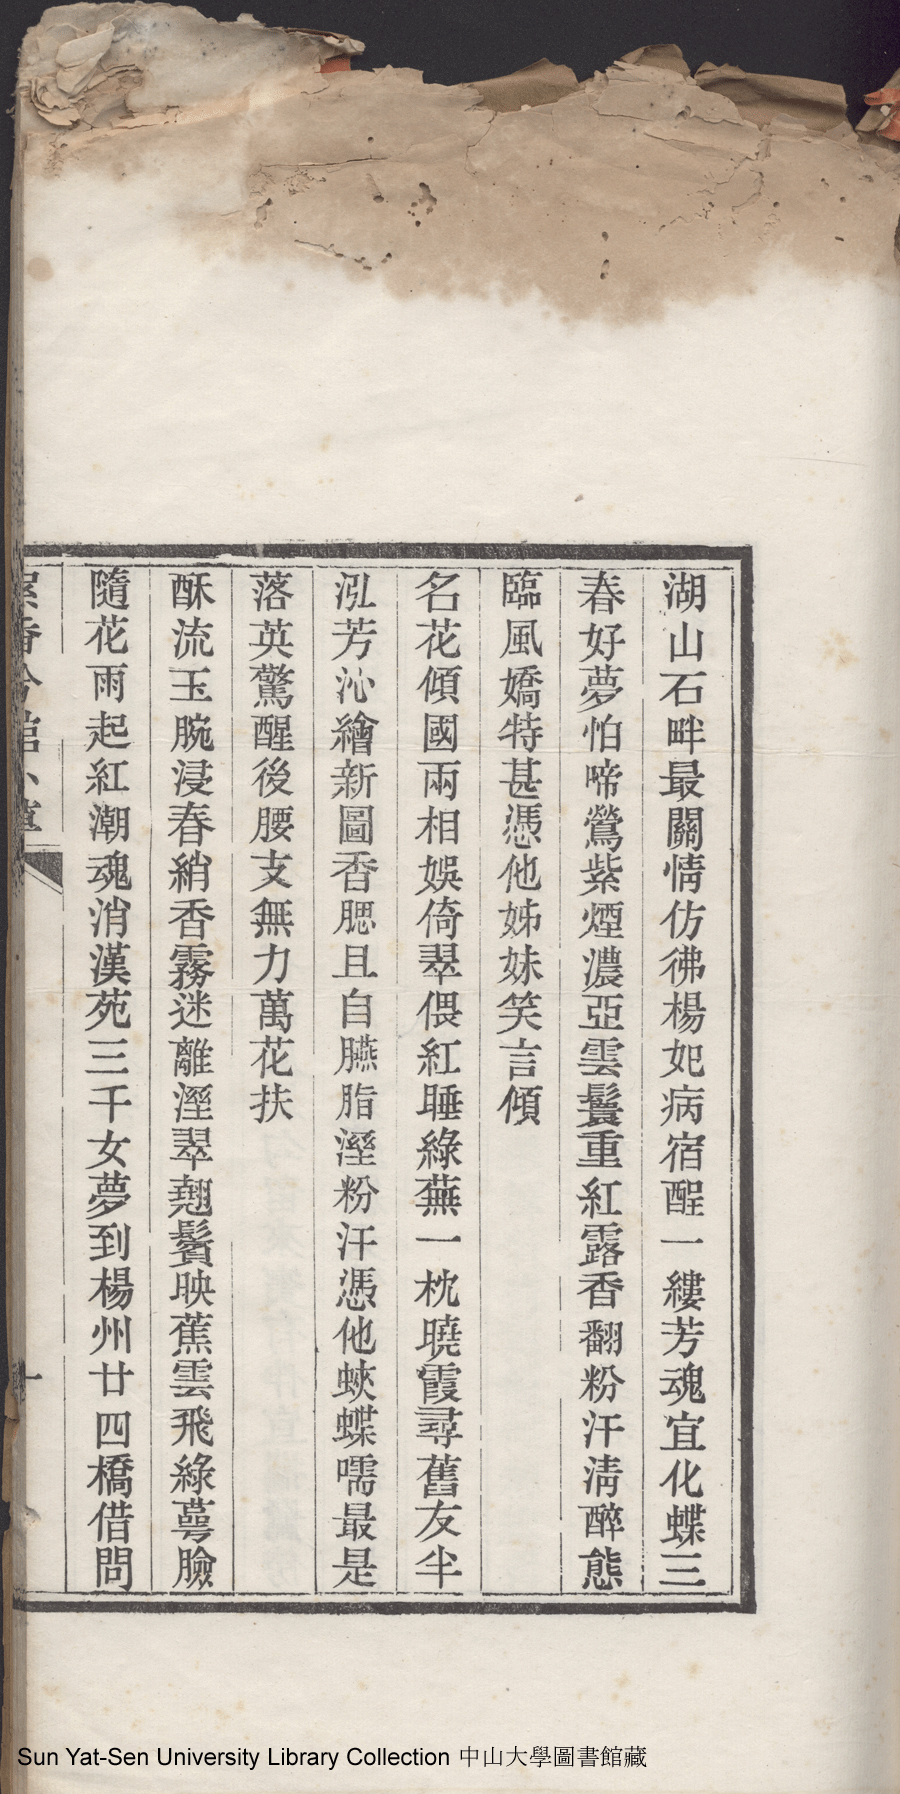 湖山石畔最關情仿彿楊妃病宿酲一縷芳魂宜化蝶三
春好夢怕啼鶯紫煙濃亞雲鬟重紅露香翻粉汗淸醉態
臨風嬌特甚憑他姊妹笑言傾
名花傾國兩相娛倚翠偎紅睡綠蕪一枕曉霞尋舊友半
泓芳沁繪新圖香腮且自臙脂溼粉汗憑他蛺蝶嚅最是
落英驚醒後腰支無力萬花扶
酥流玉腕浸春綃香霧迷離溼翠翹鬢映蕉雲飛綠蕚臉
隨花雨起紅潮魂消漢苑三千女夢到楊州廿四橋借問
香吟館小草
十
Sun Yat-Sen University Library Collection 中山大學圖書館藏